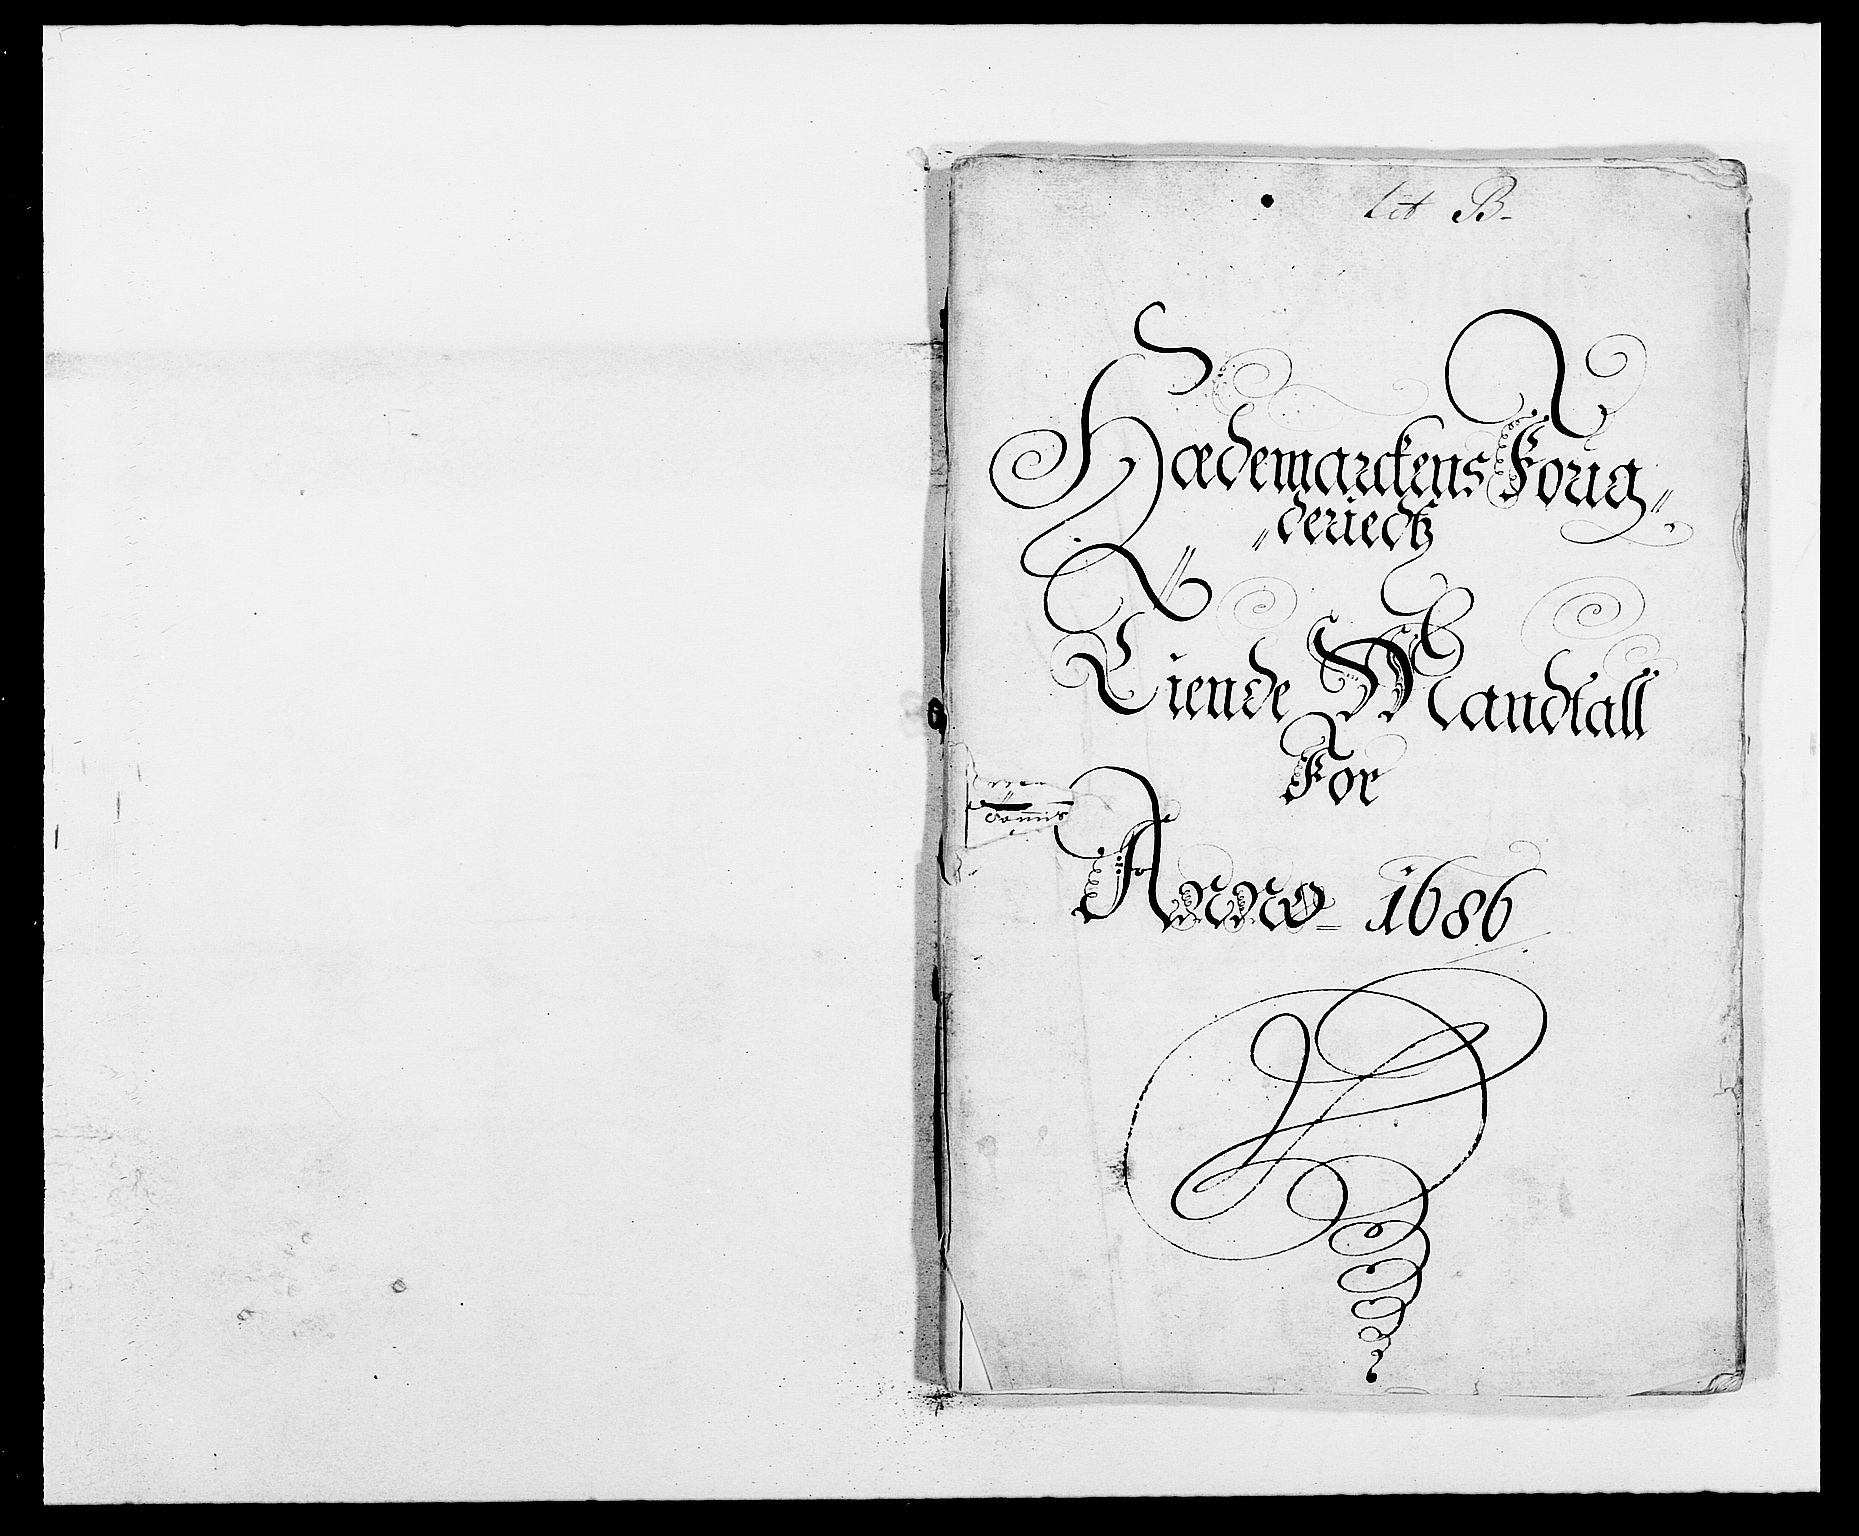 Lit B-
Hædemarckens Foug„
„deriedtz
Tiende Mandtall
For
Anno 1686